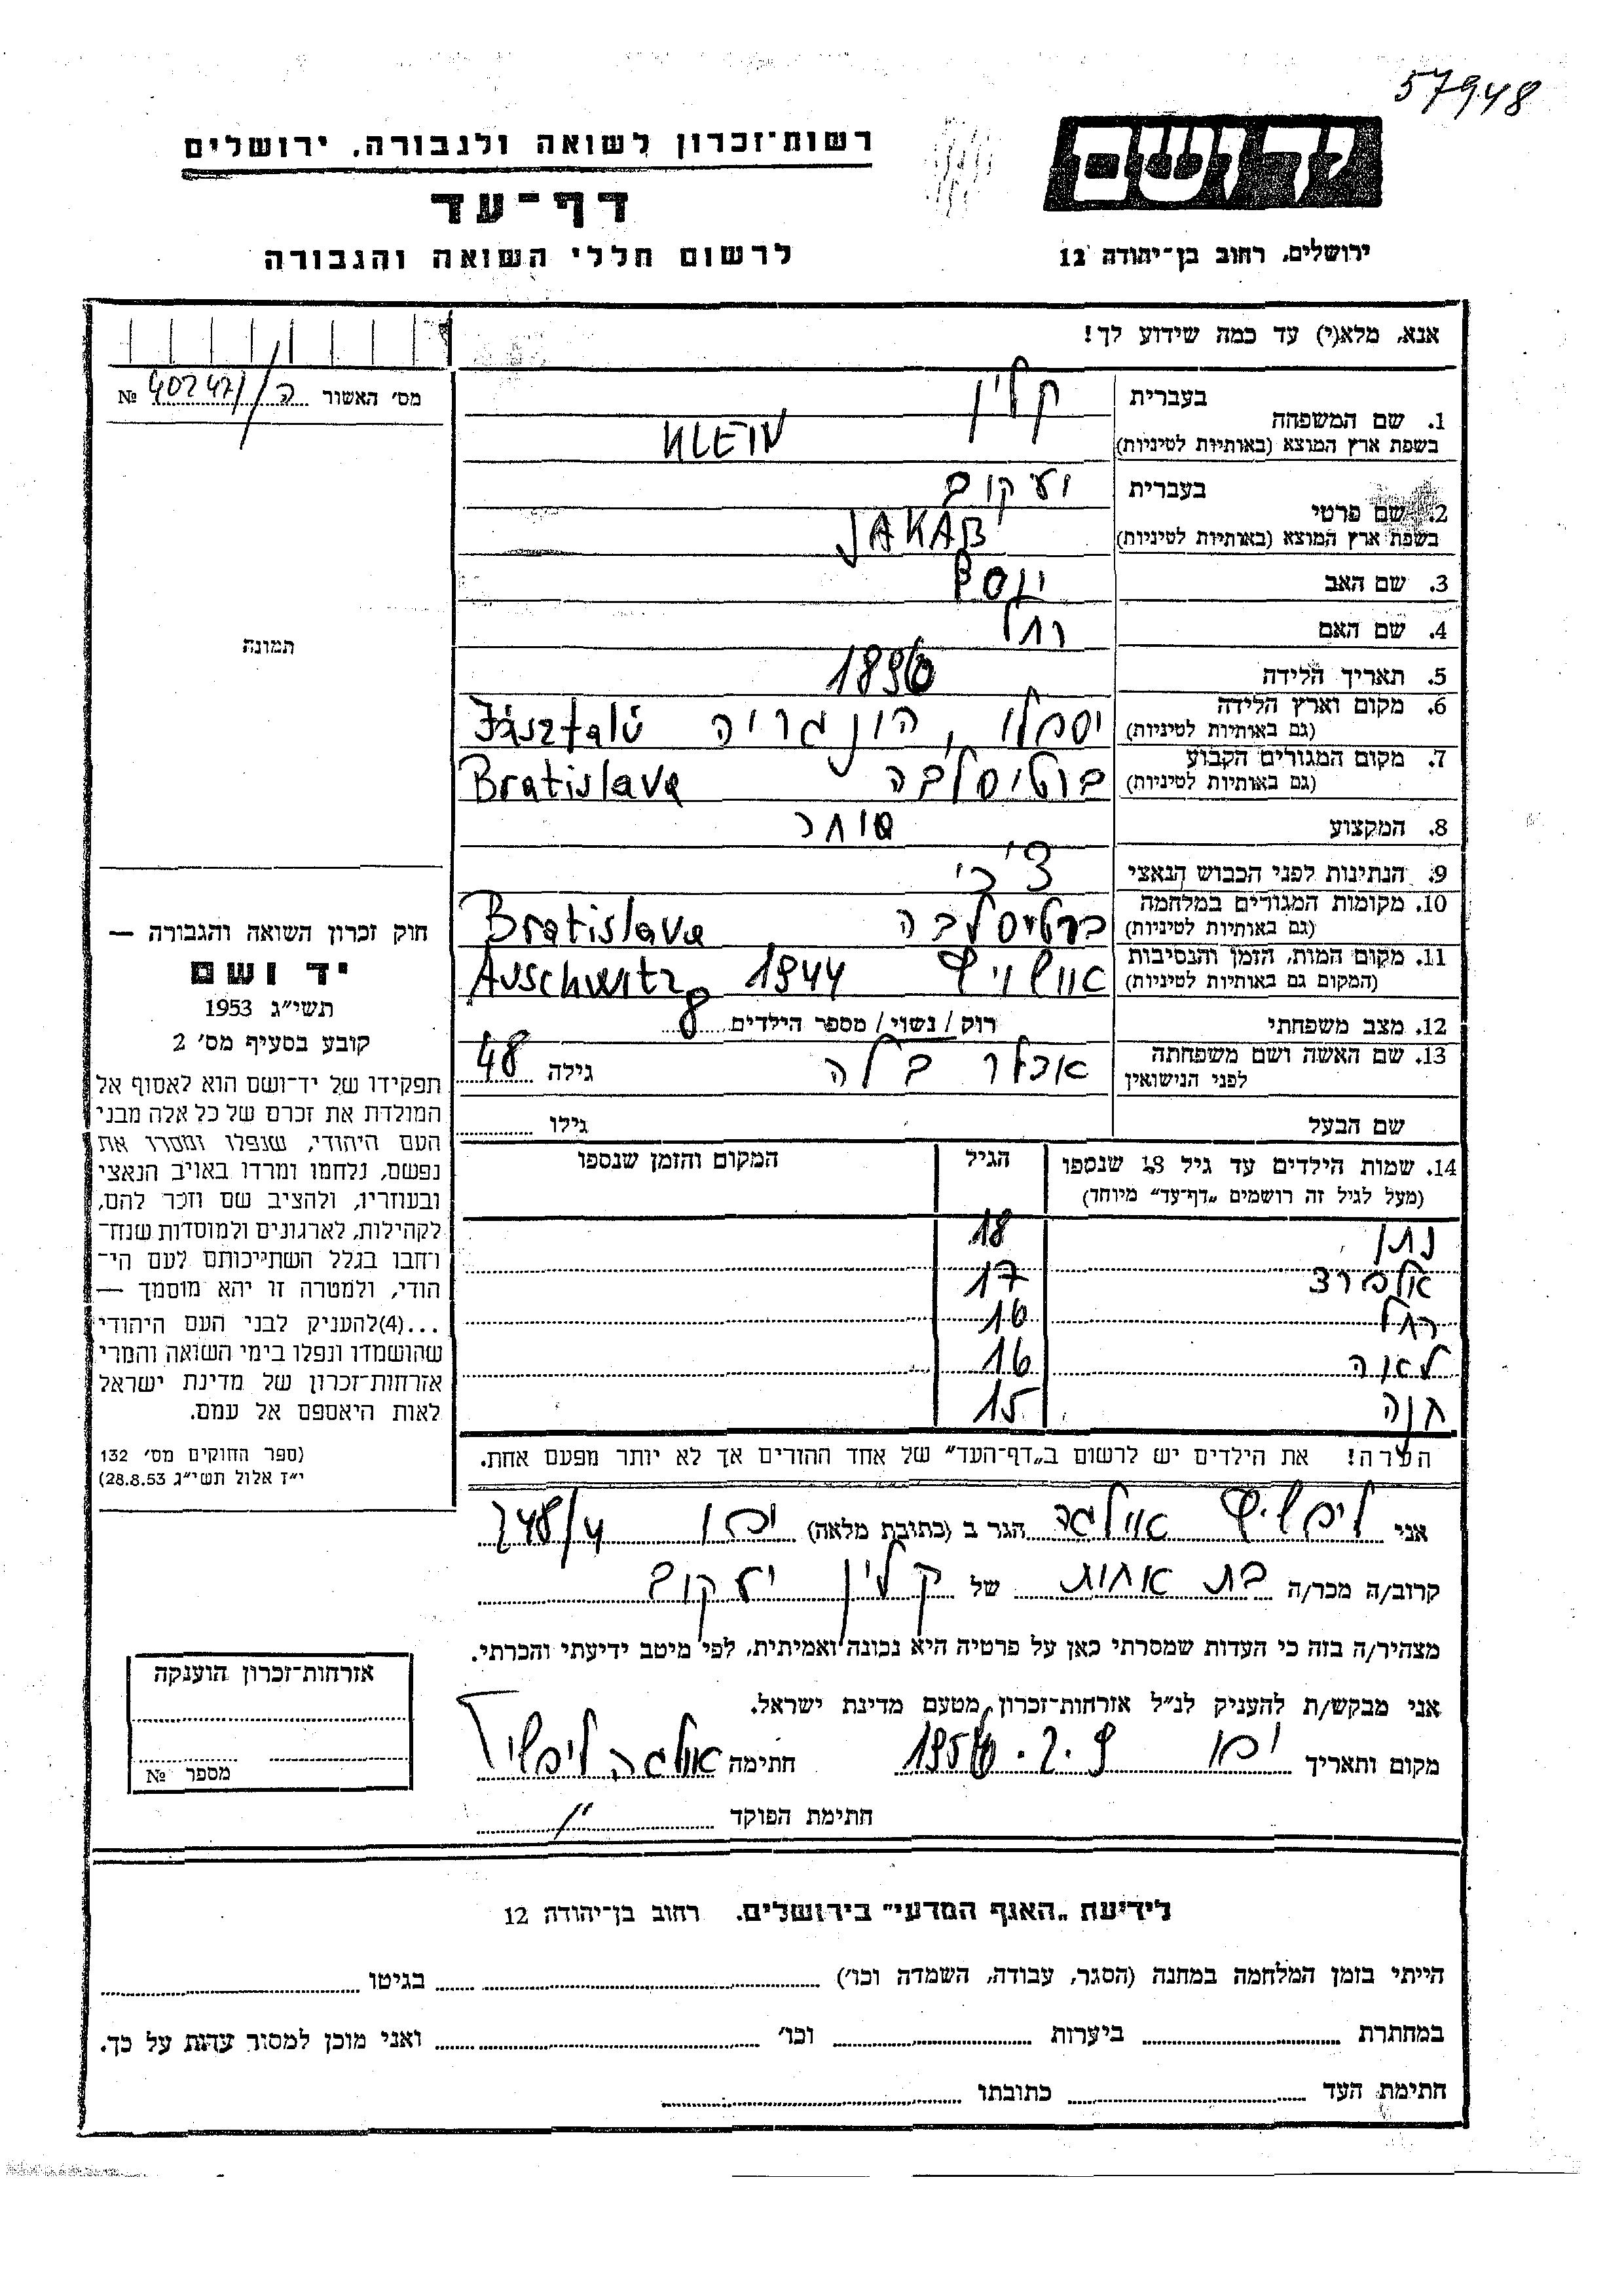 57948
רשות־זכרון לשואה ולגבורה, ירושלים
דף־עד
לרשום חללי השואה והגבורה
יד ושם
ירושלים, רחוב בן־יהודה 12
אנא, מלא(י) עד כמה שידוע לך!
מס׳ האשור ה/40247 №
תמונה
חוק זכרון השואה והגבורה —
יד ושם
תשי״ג 1953
קובע בסעיף מס׳ 2
תפקידו של יד־ושם הוא לאסוף אל
המולדת את זכרם של כל אלה מבני
העם היהודי, שנפלו ומסרו את
נפשם, נלחמו ומרדו באויב הנאצי
ובעוזריו, ולהציב שם וזכר להם,
לקהילות, לארגונים ולמוסדות שנח־
רחבו בגלל השתייכותם לעם הי־
הודי, ולמטרה זו יהא מוסמך —
...(4)להעניק לבני העם היהודי
שהושמדו ונפלו בימי השואה והמרי
אזרחות־זכרון של מדינת ישראל
לאות היאספם אל עמם.
(ספר החוקים מס׳ 132
י״ז אלול תשי״ג 28.8.53)
1. שם המשפחה בעברית קלין
בשפת ארץ המוצא (באותיות לטיניות) KLEIN
2. שם פרטי בעברית יעקוב
בשפת ארץ המוצא (באותיות לטיניות) JAKAB
3. שם האב יוסף
4. שם האם רחל
5. תאריך הלידה 1896
6. מקום וארץ הלידה (גם באותיות לטיניות) הונגריה Jásztelú
7. מקום המגורים הקבוע (גם באותיות לטיניות) ברטיסלבה Bratislava
8. המקצוע סוחר
9. הנתינות לפני הכבוש הנאצי צ׳כי
10. מקומות המגורים במלחמה (גם באותיות לטיניות) ברטיסלבה Bratislava
11. מקום המות, הזמן והנסיבות (המקום גם באותיות לטיניות) אושויץ 1944 Auschwitz
12. מצב משפחתי רוק / נשוי / מספר הילדים 8
13. שם האשה ושם משפחתה לפני הנישואין אדלר בלה גילה 48
שם הבעל גילו
14. שמות הילדים עד גיל 18 שנספו הגיל המקום והזמן שנספו
(מעל לגיל זה רושמים „דף־עד״ מיוחד)
נתן 18
17
רחל 16
לאה 16
חנה 15
הערה! את הילדים יש לרשום ב„דף־העד״ של אחד ההורים אך לא יותר מפעם אחת.
אני ליפשיץ אולגה הגר ב (כתובת מלאה) יפו 248/4
קרוב/ה מכר/ה בת אחות של קלין יעקוב
מצהיר/ה בזה כי העדות שמסרתי כאן על פרטיה היא נכונה ואמיתית, לפי מיטב ידיעתי והכרתי.
אני מבקש/ת להעניק לנ״ל אזרחות־זכרון מטעם מדינת ישראל.
מקום ותאריך יפו 9.2.1956 חתימה אולגה ליפשיץ
חתימת הפוקד
אזרחות־זכרון הוענקה
מספר №
לידיעת „האגף המדעי״ בירושלים, רחוב בן־יהודה 12
הייתי בזמן המלחמה במחנה (הסגר, עבודה, השמדה וכו׳) בגיטו
במחתרת ביערות וכו׳ ואני מוכן למסור עדות על כך.
חתימת העד כתובתו